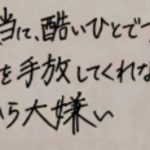 当に、酷いひとでっ
を手放してくれな
ら大嫌い